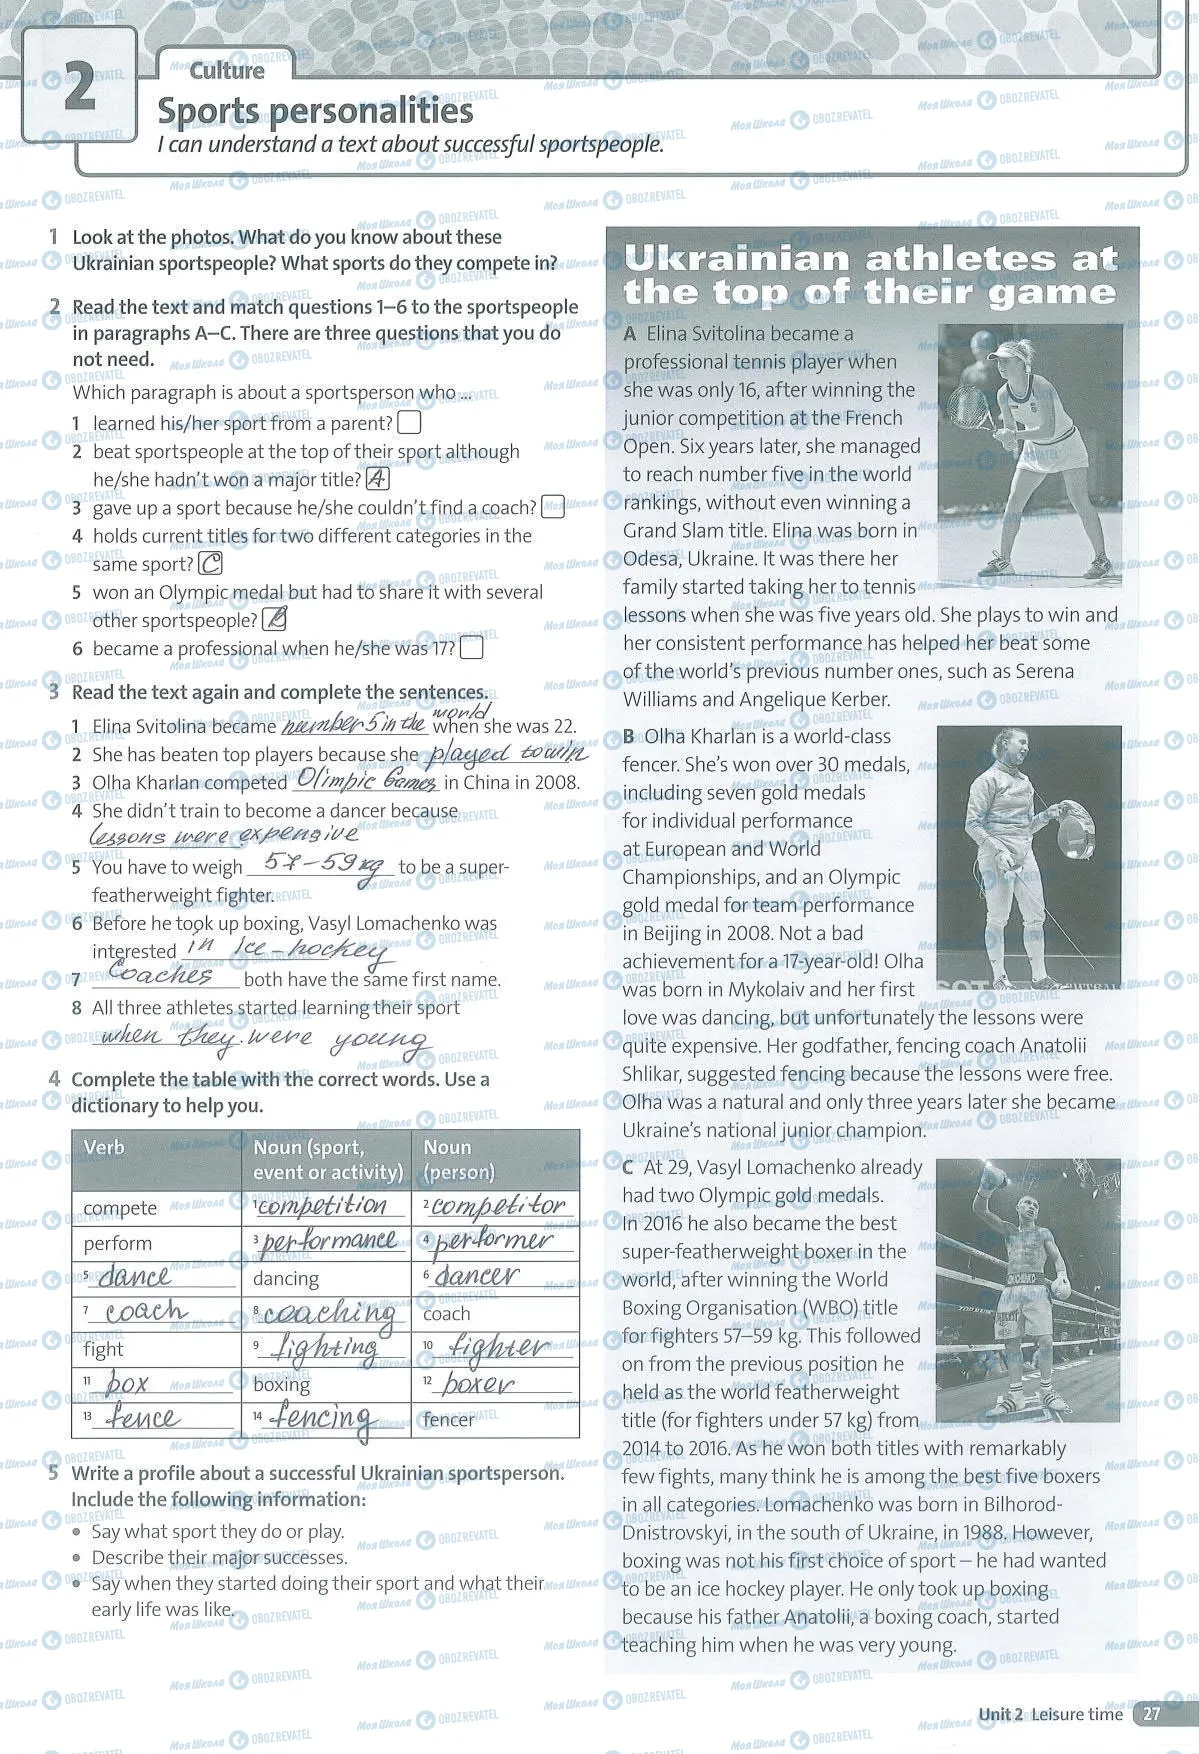 2
Culture
Sports personalities
I can understand a text about successful sportspeople.
1 Look at the photos. What do you know about these
Ukrainian sportspeople? What sports do they compete in?
2 Read the text and match questions 1–6 to the sportspeople
in paragraphs A–C. There are three questions that you do
not need.
Which paragraph is about a sportsperson who ...
1 learned his/her sport from a parent?
2 beat sportspeople at the top of their sport although
he/she hadn't won a major title? A
3 gave up a sport because he/she couldn't find a coach?
4 holds current titles for two different categories in the
same sport? C
5 won an Olympic medal but had to share it with several
other sportspeople? B
6 became a professional when he/she was 17?
3 Read the text again and complete the sentences.
1 Elina Svitolina became number 5 in the world when she was 22.
2 She has beaten top players because she played to win
3 Olha Kharlan competed Olimpic Games in China in 2008.
4 She didn't train to become a dancer because
lessons were expensive
5 You have to weigh 57-59 kg to be a super-
featherweight fighter.
6 Before he took up boxing, Vasyl Lomachenko was
interested in ice-hockey
7 Coaches both have the same first name.
8 All three athletes started learning their sport
when they were young
4 Complete the table with the correct words. Use a
dictionary to help you.
Verb Noun (sport, event or activity) Noun (person)
compete 1 competition 2 competitor
perform 3 performance 4 performer
5 dance dancing 6 dancer
7 coach 8 coaching coach
fight 9 fighting 10 fighter
11 box boxing 12 boxer
13 fence 14 fencing fencer
5 Write a profile about a successful Ukrainian sportsperson.
Include the following information:
• Say what sport they do or play.
• Describe their major successes.
• Say when they started doing their sport and what their
early life was like.
Ukrainian athletes at
the top of their game
A Elina Svitolina became a
professional tennis player when
she was only 16, after winning the
junior competition at the French
Open. Six years later, she managed
to reach number five in the world
rankings, without even winning a
Grand Slam title. Elina was born in
Odesa, Ukraine. It was there her
family started taking her to tennis
lessons when she was five years old. She plays to win and
her consistent performance has helped her beat some
of the world's previous number ones, such as Serena
Williams and Angelique Kerber.
B Olha Kharlan is a world-class
fencer. She's won over 30 medals,
including seven gold medals
for individual performance
at European and World
Championships, and an Olympic
gold medal for team performance
in Beijing in 2008. Not a bad
achievement for a 17-year-old! Olha
was born in Mykolaiv and her first
love was dancing, but unfortunately the lessons were
quite expensive. Her godfather, fencing coach Anatolii
Shlikar, suggested fencing because the lessons were free.
Olha was a natural and only three years later she became
Ukraine's national junior champion.
C At 29, Vasyl Lomachenko already
had two Olympic gold medals.
In 2016 he also became the best
super-featherweight boxer in the
world, after winning the World
Boxing Organisation (WBO) title
for fighters 57–59 kg. This followed
on from the previous position he
held as the world featherweight
title (for fighters under 57 kg) from
2014 to 2016. As he won both titles with remarkably
few fights, many think he is among the best five boxers
in all categories. Lomachenko was born in Bilhorod-
Dnistrovskyi, in the south of Ukraine, in 1988. However,
boxing was not his first choice of sport – he had wanted
to be an ice hockey player. He only took up boxing
because his father Anatolii, a boxing coach, started
teaching him when he was very young.
Unit 2 Leisure time 27
Моя Школа OBOZREVATEL